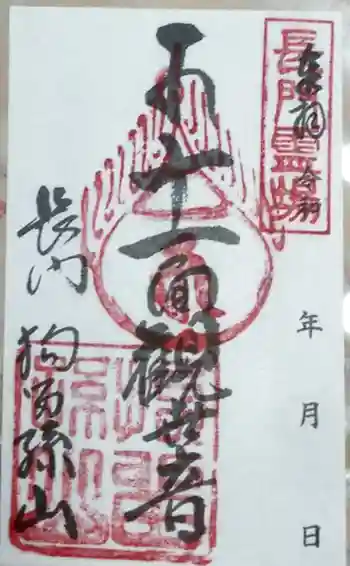 長門霊場
奉拝 令和
年 月 日
山十一面觀世音
長門
狗留孫山